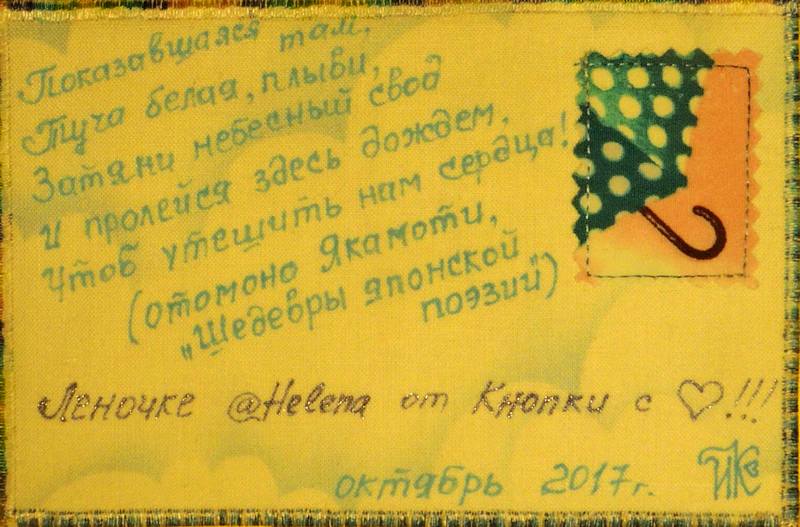 Показавшаяся там,
Туча белая, плыви,
Затяни небесный свод
и пролейся здесь дождем,
Чтоб утешить нам сердца!
(отомоно Якамоти,
"Шедевры японской
поэзии")
Леночке @Helena от Кнопки с ♡!!!
октябрь 2017г.